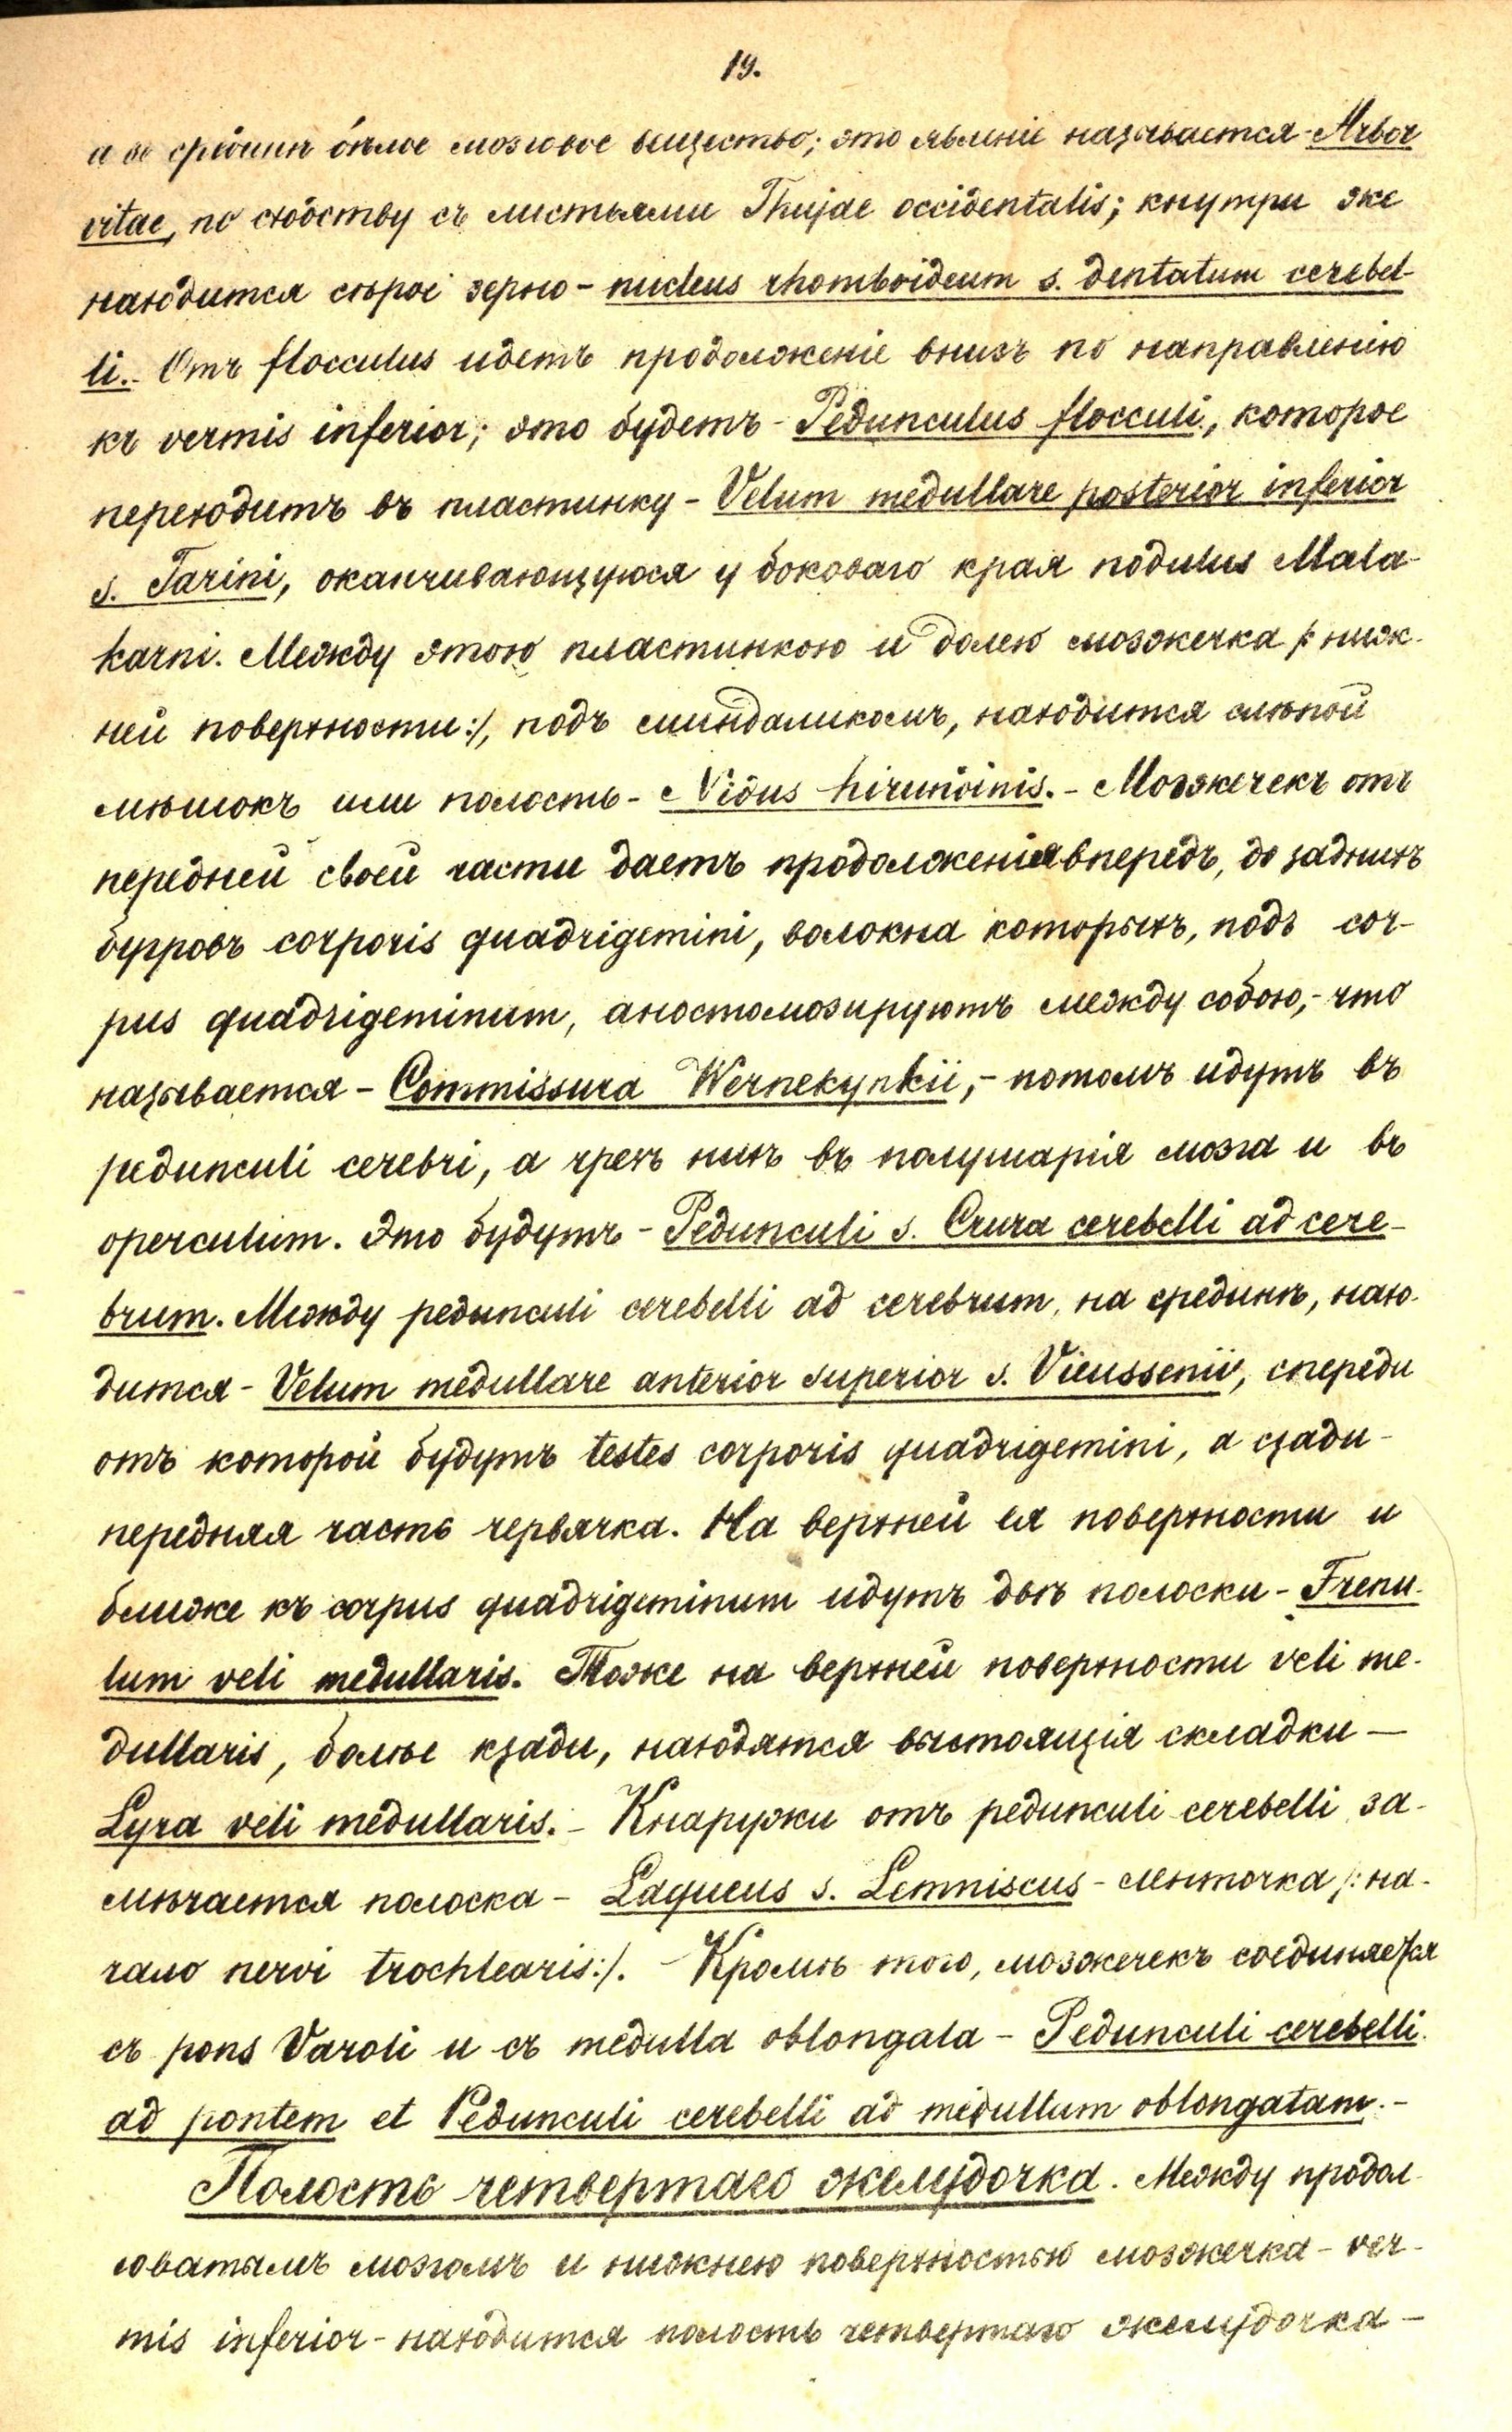 19.
а въ срединѣ бѣлое мозговое вещество; это явленіе называется - Arbor
vitae, по сходству съ листьями Thujae occidentalis; кнутри же
находится сѣрое зерно - nucleus rhomboideum s. dentatum cerebel-
li. - Отъ flocculus идетъ продолженіе внизъ по направленію
къ vermis inferior; это будетъ - Pedunculus flocculi, которое
переходитъ въ пластинку - Velum medullare posterior inferior
s. Tarini, оканчивающуюся у боковаго края nodulus Mala-
karni. Между этою пластинкою и долею мозжечка /: ниж-
ней поверхности :/, подъ миндаликомъ, находится слѣпой
мѣшокъ или полость - Nidus hirundinis. - Мозжечекъ отъ
передней своей части даетъ продолженія впередъ, до заднихъ
бугровъ corporis quadrigemini, волокна которыхъ, подъ cor-
pus quadrigeminum, аностомозируютъ между собою, - что
называется - Commissura Wernekynkii, - потомъ идутъ въ
pedunculi cerebri, а чрезъ нихъ въ полушарія мозга и въ
operculum. Это будутъ - Pedunculi s. Crura cerebelli ad cere-
brum. Между pedunculi cerebelli ad cerebrum, на срединѣ, нахо-
дится - Velum medullare anterior superior s. Vieussenii, спереди
отъ которой будутъ testes corporis quadrigemini, а сзади -
передняя часть червячка. На верхней ея поверхности и
ближе къ corpus quadrigeminum идутъ двѣ полоски - Frenu-
lum veli medullaris. Тоже на верхней поверхности veli me-
dullaris, болѣе кзади, находятся выстоящія складки —
Lyra veli medullaris. - Кнаружи отъ pedunculi cerebelli за-
мѣчается полоска - Laqueus s. Lemniscus - ленточка /: на-
чало nervi trochlearis :/. - Кромѣ того, мозжечекъ соединяется
съ pons Varoli и съ medulla oblongata - Pedunculi cerebelli
ad pontem et Pedunculi cerebelli ad medullam oblongatam. -
Полость четвертаго желудочка. Между продол-
говатымъ мозгомъ и нижнею поверхностью мозжечка - ver-
mis inferior - находится полость четвертаго желудочка -